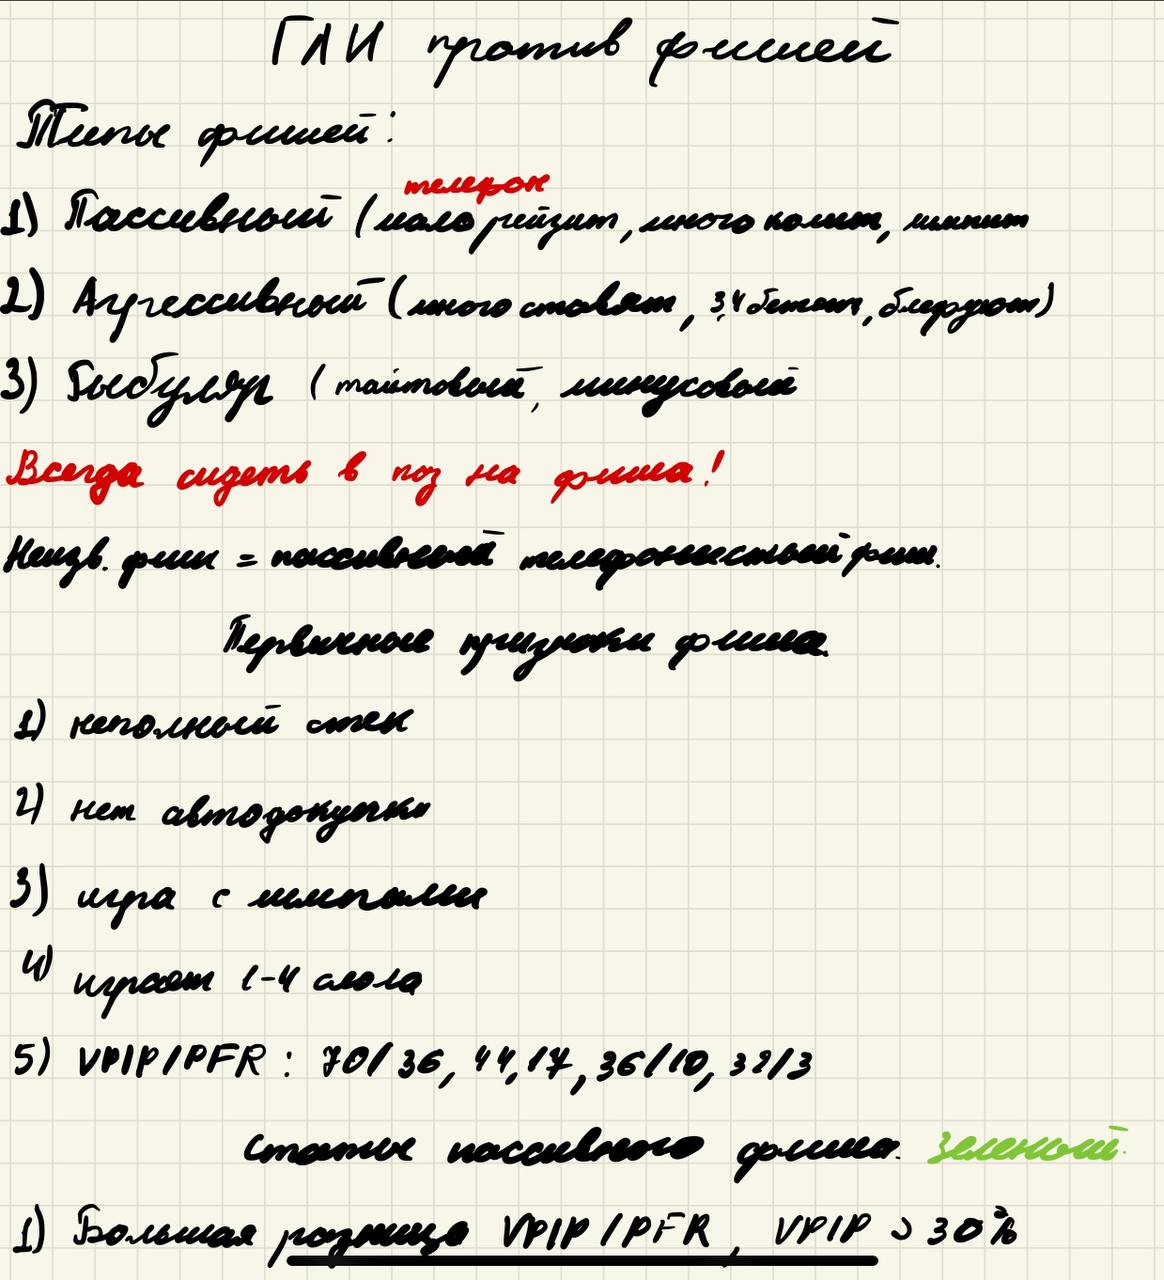 ГЛИ против фишей
Типы фишей:
телефон
1) Пассивный (мало рейзит, много колит, лимпит
2) Агрессивный (много ставят, 3,4 бетят, блефуют)
3) Быбуляр (тайтовый, минусовый
Всегда сидеть в поз на фиша!
Неизв. фиш = пассивный телефонистый фиш.
Первичные признаки фиша.
1) неполный стек
2) нет автодокупки
3) игра с лимпами
4) играет 1-4 стола
5) VPIP/PFR: 70/36, 44,17, 36/10, 32/3
Статы пассивного фиша. Зеленый.
1) Большая разница VPIP/PFR, VPIP > 30%